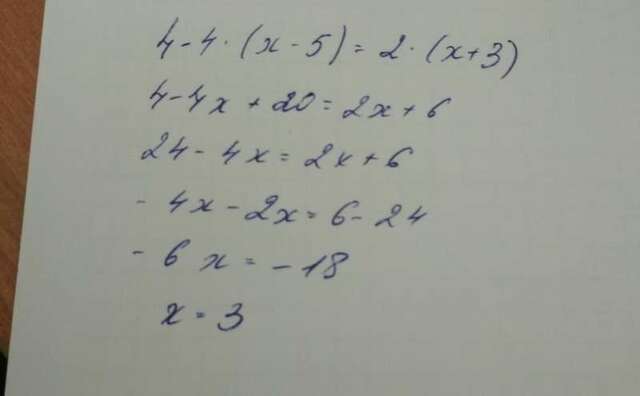 4-4·(x-5)=2·(x+3)
4-4x+20=2x+6
24-4x=2x+6
-4x-2x=6-24
-6x=-18
x=3